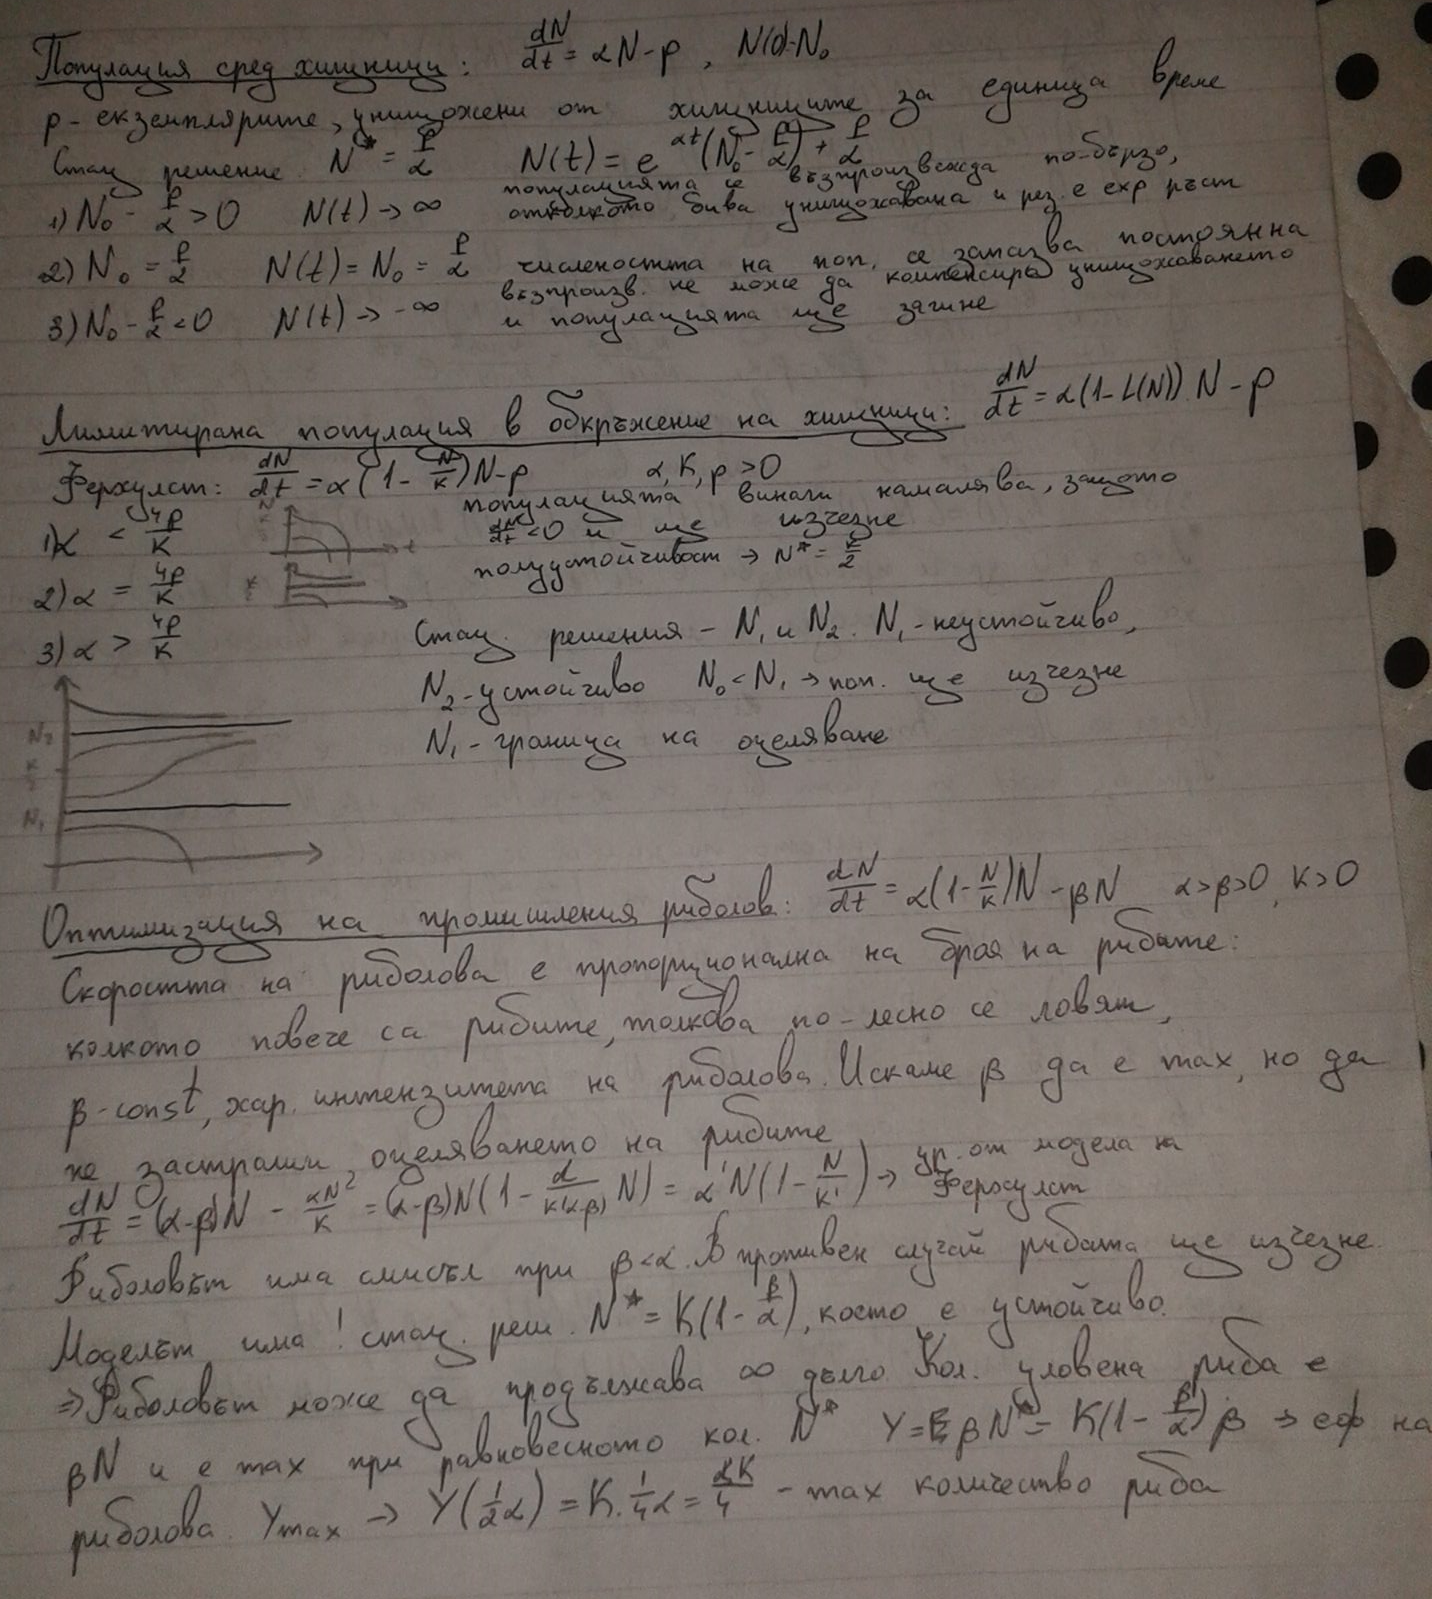 Популация сред хищници: dN/dt = αN - p, N(0)=N₀
p - екземплярите, унищожени от хищниците за единица време
Стац решение N* = p/α N(t) = e^αt (N₀ - p/α) + p/α
1) N₀ - p/α > 0 N(t) → ∞ популацията се възпроизвежда по-бързо,
отколкото бива унищожавана и рез. е exp ръст
2) N₀ = p/α N(t) = N₀ = p/α числеността на поп. се запазва постоянна
3) N₀ - p/α < 0 N(t) → -∞ възпроизв. не може да компенсира унищожаването
и популацията ще загине
Лимитирана популация в обкръжение на хищници: dN/dt = α(1 - L(N)) N - p
Ферхулст: dN/dt = α(1 - N/K)N - p α, K, p > 0
1) α < 4p/K популацията винаги намалява, защото
dN/dt < 0 и ще изчезне
N t
2) α = 4p/K полуустойчивост → N* = K/2
3) α > 4p/K Стац. решения - N₁ и N₂. N₁ - неустойчиво,
N₂ - устойчиво N₀ < N₁ → поп. ще изчезне
N₁ - граница на оцеляване
N₂
K/2
N₁
Оптимизация на промишления риболов: dN/dt = α(1 - N/K)N - βN α > β > 0, K > 0
Скоростта на риболова е пропорционална на броя на рибите:
колкото повече са рибите, толкова по-лесно се ловят,
β - const, хар. интензитета на риболова. Искаме β да е max, но да
не застраши оцеляването на рибите
dN/dt = (α-β)N - αN²/K = (α-β)N(1 - α/K(α-β) N) = α'N(1 - N/K') → ур. от модела на
Ферхулст
Риболовът има смисъл при β < α. В противен случай рибата ще изчезне.
Моделът има ! стац. реш. N* = K(1 - β/α), което е устойчиво.
⇒ Риболовът може да продължава ∞ дълго. Кол. уловена риба е
βN и е max при равновесното кол. N* Y = βN* = K(1 - β/α)β → еф на
риболова. Ymax → Y(1/2 α) = K.1/4 α = αK/4 - max количество риба